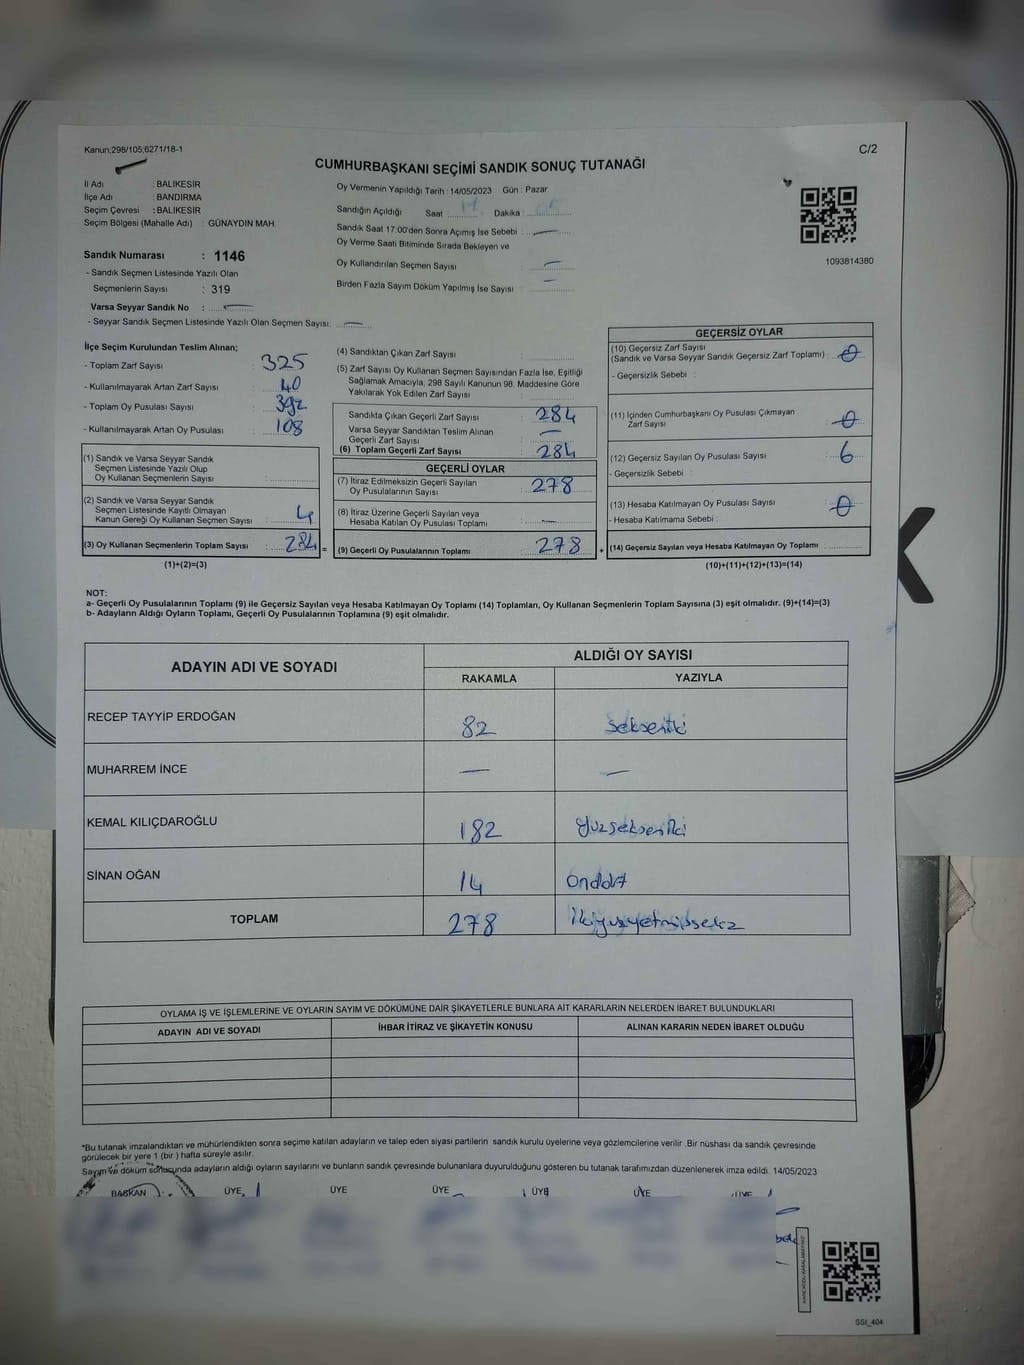 Kanun:298/105;6271/18-1
C/2
CUMHURBAŞKANI SEÇİMİ SANDIK SONUÇ TUTANAĞI
İl Adı : BALIKESİR
İlçe Adı : BANDIRMA
Seçim Çevresi : BALIKESİR
Seçim Bölgesi (Mahalle Adı) : GÜNAYDIN MAH.
Sandık Numarası : 1146
- Sandık Seçmen Listesinde Yazılı Olan
Seçmenlerin Sayısı : 319
Varsa Seyyar Sandık No : —
- Seyyar Sandık Seçmen Listesinde Yazılı Olan Seçmen Sayısı: —
Oy Vermenin Yapıldığı Tarih : 14/05/2023 Gün : Pazar
Sandığın Açıldığı Saat Dakika :
Sandık Saat 17:00'den Sonra Açımış İse Sebebi : —
Oy Verme Saati Bitiminde Sırada Bekleyen ve
Oy Kullandırılan Seçmen Sayısı : —
Birden Fazla Sayım Döküm Yapılmış İse Sayısı : —
1093814380
İlçe Seçim Kurulundan Teslim Alınan;
- Toplam Zarf Sayısı : 325
- Kullanılmayarak Artan Zarf Sayısı : 40
- Toplam Oy Pusulası Sayısı : 392
- Kullanılmayarak Artan Oy Pusulası : 108
(1) Sandık ve Varsa Seyyar Sandık
Seçmen Listesinde Yazılı Olup
Oy Kullanan Seçmenlerin Sayısı :
(2) Sandık ve Varsa Seyyar Sandık
Seçmen Listesinde Kayıtlı Olmayan
Kanun Gereği Oy Kullanan Seçmen Sayısı : 4
(3) Oy Kullanan Seçmenlerin Toplam Sayısı : 284 =
(1)+(2)=(3)
(4) Sandıktan Çıkan Zarf Sayısı :
(5) Zarf Sayısı Oy Kullanan Seçmen Sayısından Fazla İse, Eşitliği
Sağlamak Amacıyla, 298 Sayılı Kanunun 98. Maddesine Göre
Yakılarak Yok Edilen Zarf Sayısı :
Sandıkta Çıkan Geçerli Zarf Sayısı : 284
Varsa Seyyar Sandıktan Teslim Alınan
Geçerli Zarf Sayısı : —
(6) Toplam Geçerli Zarf Sayısı : 284
GEÇERLİ OYLAR
(7) İtiraz Edilmeksizin Geçerli Sayılan
Oy Pusulalarının Sayısı : 278
(8) İtiraz Üzerine Geçerli Sayılan veya
Hesaba Katılan Oy Pusulası Toplamı : —
(9) Geçerli Oy Pusulalarının Toplamı : 278 +
GEÇERSİZ OYLAR
(10) Geçersiz Zarf Sayısı
(Sandık ve Varsa Seyyar Sandık Geçersiz Zarf Toplamı) : 0
- Geçersizlik Sebebi :
(11) İçinden Cumhurbaşkanı Oy Pusulası Çıkmayan
Zarf Sayısı : 0
(12) Geçersiz Sayılan Oy Pusulası Sayısı : 6
- Geçersizlik Sebebi :
(13) Hesaba Katılmayan Oy Pusulası Sayısı : 0
- Hesaba Katılmama Sebebi :
(14) Geçersiz Sayılan veya Hesaba Katılmayan Oy Toplamı :
(10)+(11)+(12)+(13)=(14)
NOT:
a- Geçerli Oy Pusulalarının Toplamı (9) ile Geçersiz Sayılan veya Hesaba Katılmayan Oy Toplamı (14) Toplamları, Oy Kullanan Seçmenlerin Toplam Sayısına (3) eşit olmalıdır. (9)+(14)=(3)
b- Adayların Aldığı Oyların Toplamı, Geçerli Oy Pusulalarının Toplamına (9) eşit olmalıdır.
ADAYIN ADI VE SOYADI ALDIĞI OY SAYISI
RAKAMLA YAZIYLA
RECEP TAYYİP ERDOĞAN 82 Sekseniki
MUHARREM İNCE — —
KEMAL KILIÇDAROĞLU 182 Yüzsekseniki
SİNAN OĞAN 14 Ondört
TOPLAM 278 İkiyüzyetmişsekiz
OYLAMA İŞ VE İŞLEMLERİNE VE OYLARIN SAYIM VE DÖKÜMÜNE DAİR ŞİKAYETLERLE BUNLARA AİT KARARLARIN NELERDEN İBARET BULUNDUKLARI
ADAYIN ADI VE SOYADI İHBAR İTİRAZ VE ŞİKAYETİN KONUSU ALINAN KARARIN NEDEN İBARET OLDUĞU
*Bu tutanak imzalandıktan ve mühürlendikten sonra seçime katılan adayların ve talep eden siyasi partilerin sandık kurulu üyelerine veya gözlemcilerine verilir .Bir nüshası da sandık çevresinde
görülecek bir yere 1 (bir ) hafta süreyle asılır.
Sayım ve döküm sonucunda adayların aldığı oyların sayılarını ve bunların sandık çevresinde bulunanlara duyurulduğunu gösteren bu tutanak tarafımızdan düzenlenerek imza edildi. 14/05/2023
BAŞKAN ÜYE ÜYE ÜYE ÜYE ÜYE ÜYE
SSI_404
K